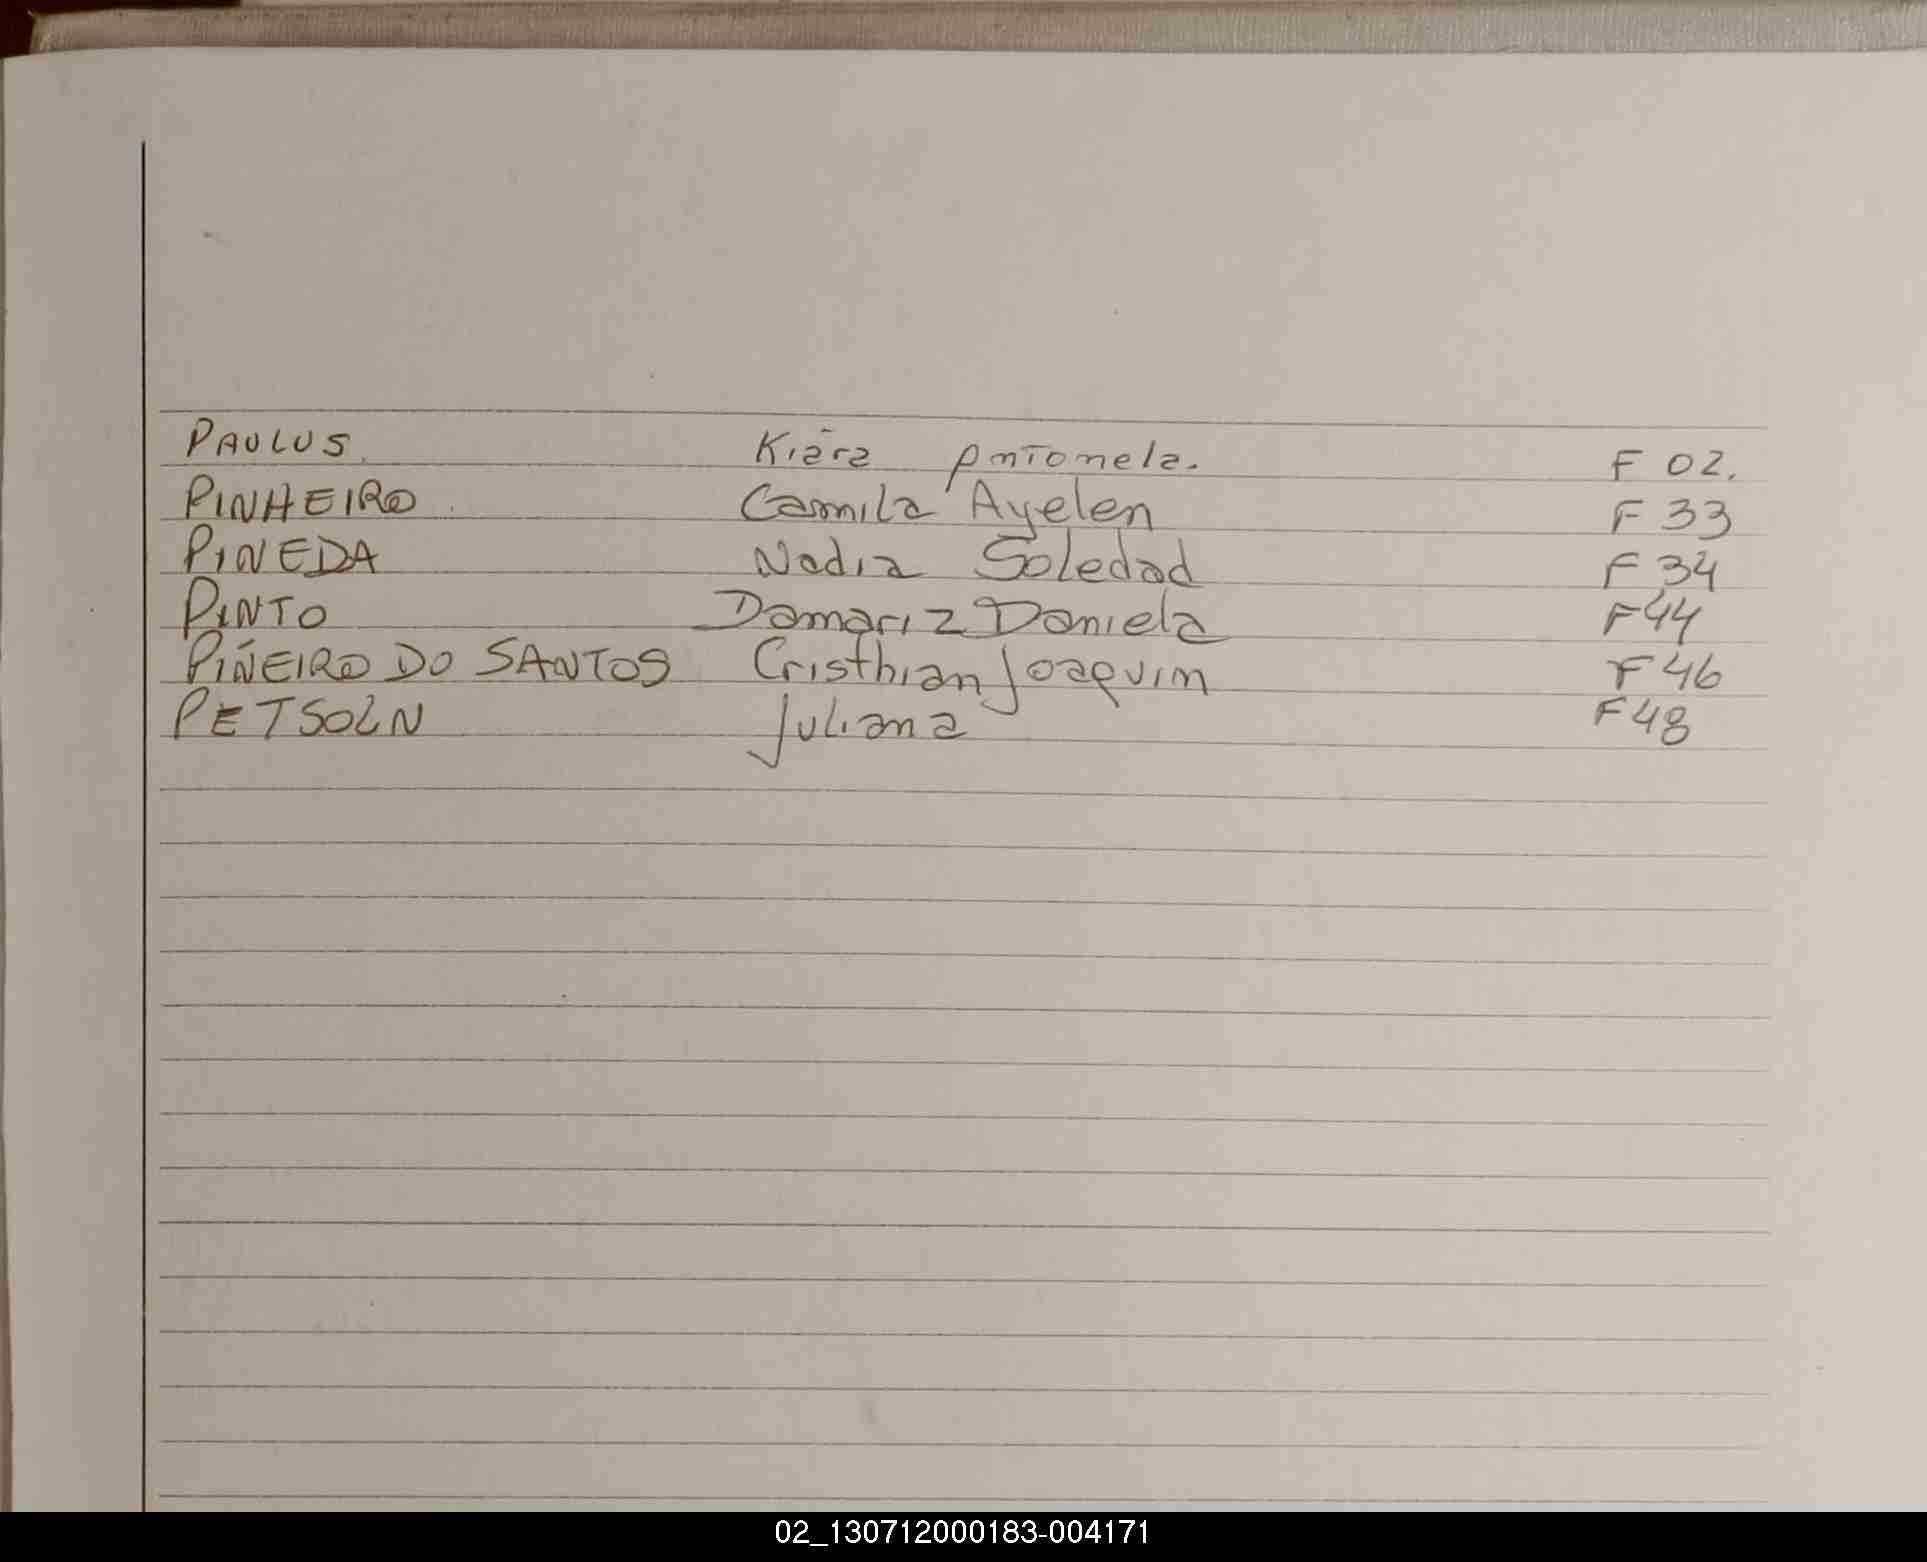 PAULUS. Kiara Antonela. F 02.
PINHEIRO Camila Ayelen F 33
PINEDA Nadia Soledad F 34
PINTO Damariz Daniela F 44
PIÑEIRO DO SANTOS Cristhian Joaquim F 46
PETSOLN Juliana F 48
02_130712000183-004171